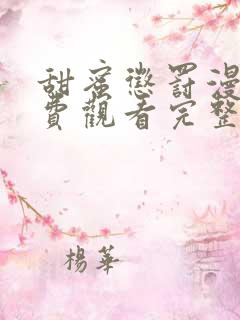 甜蜜懲罰漫
費觀看完整
楊華